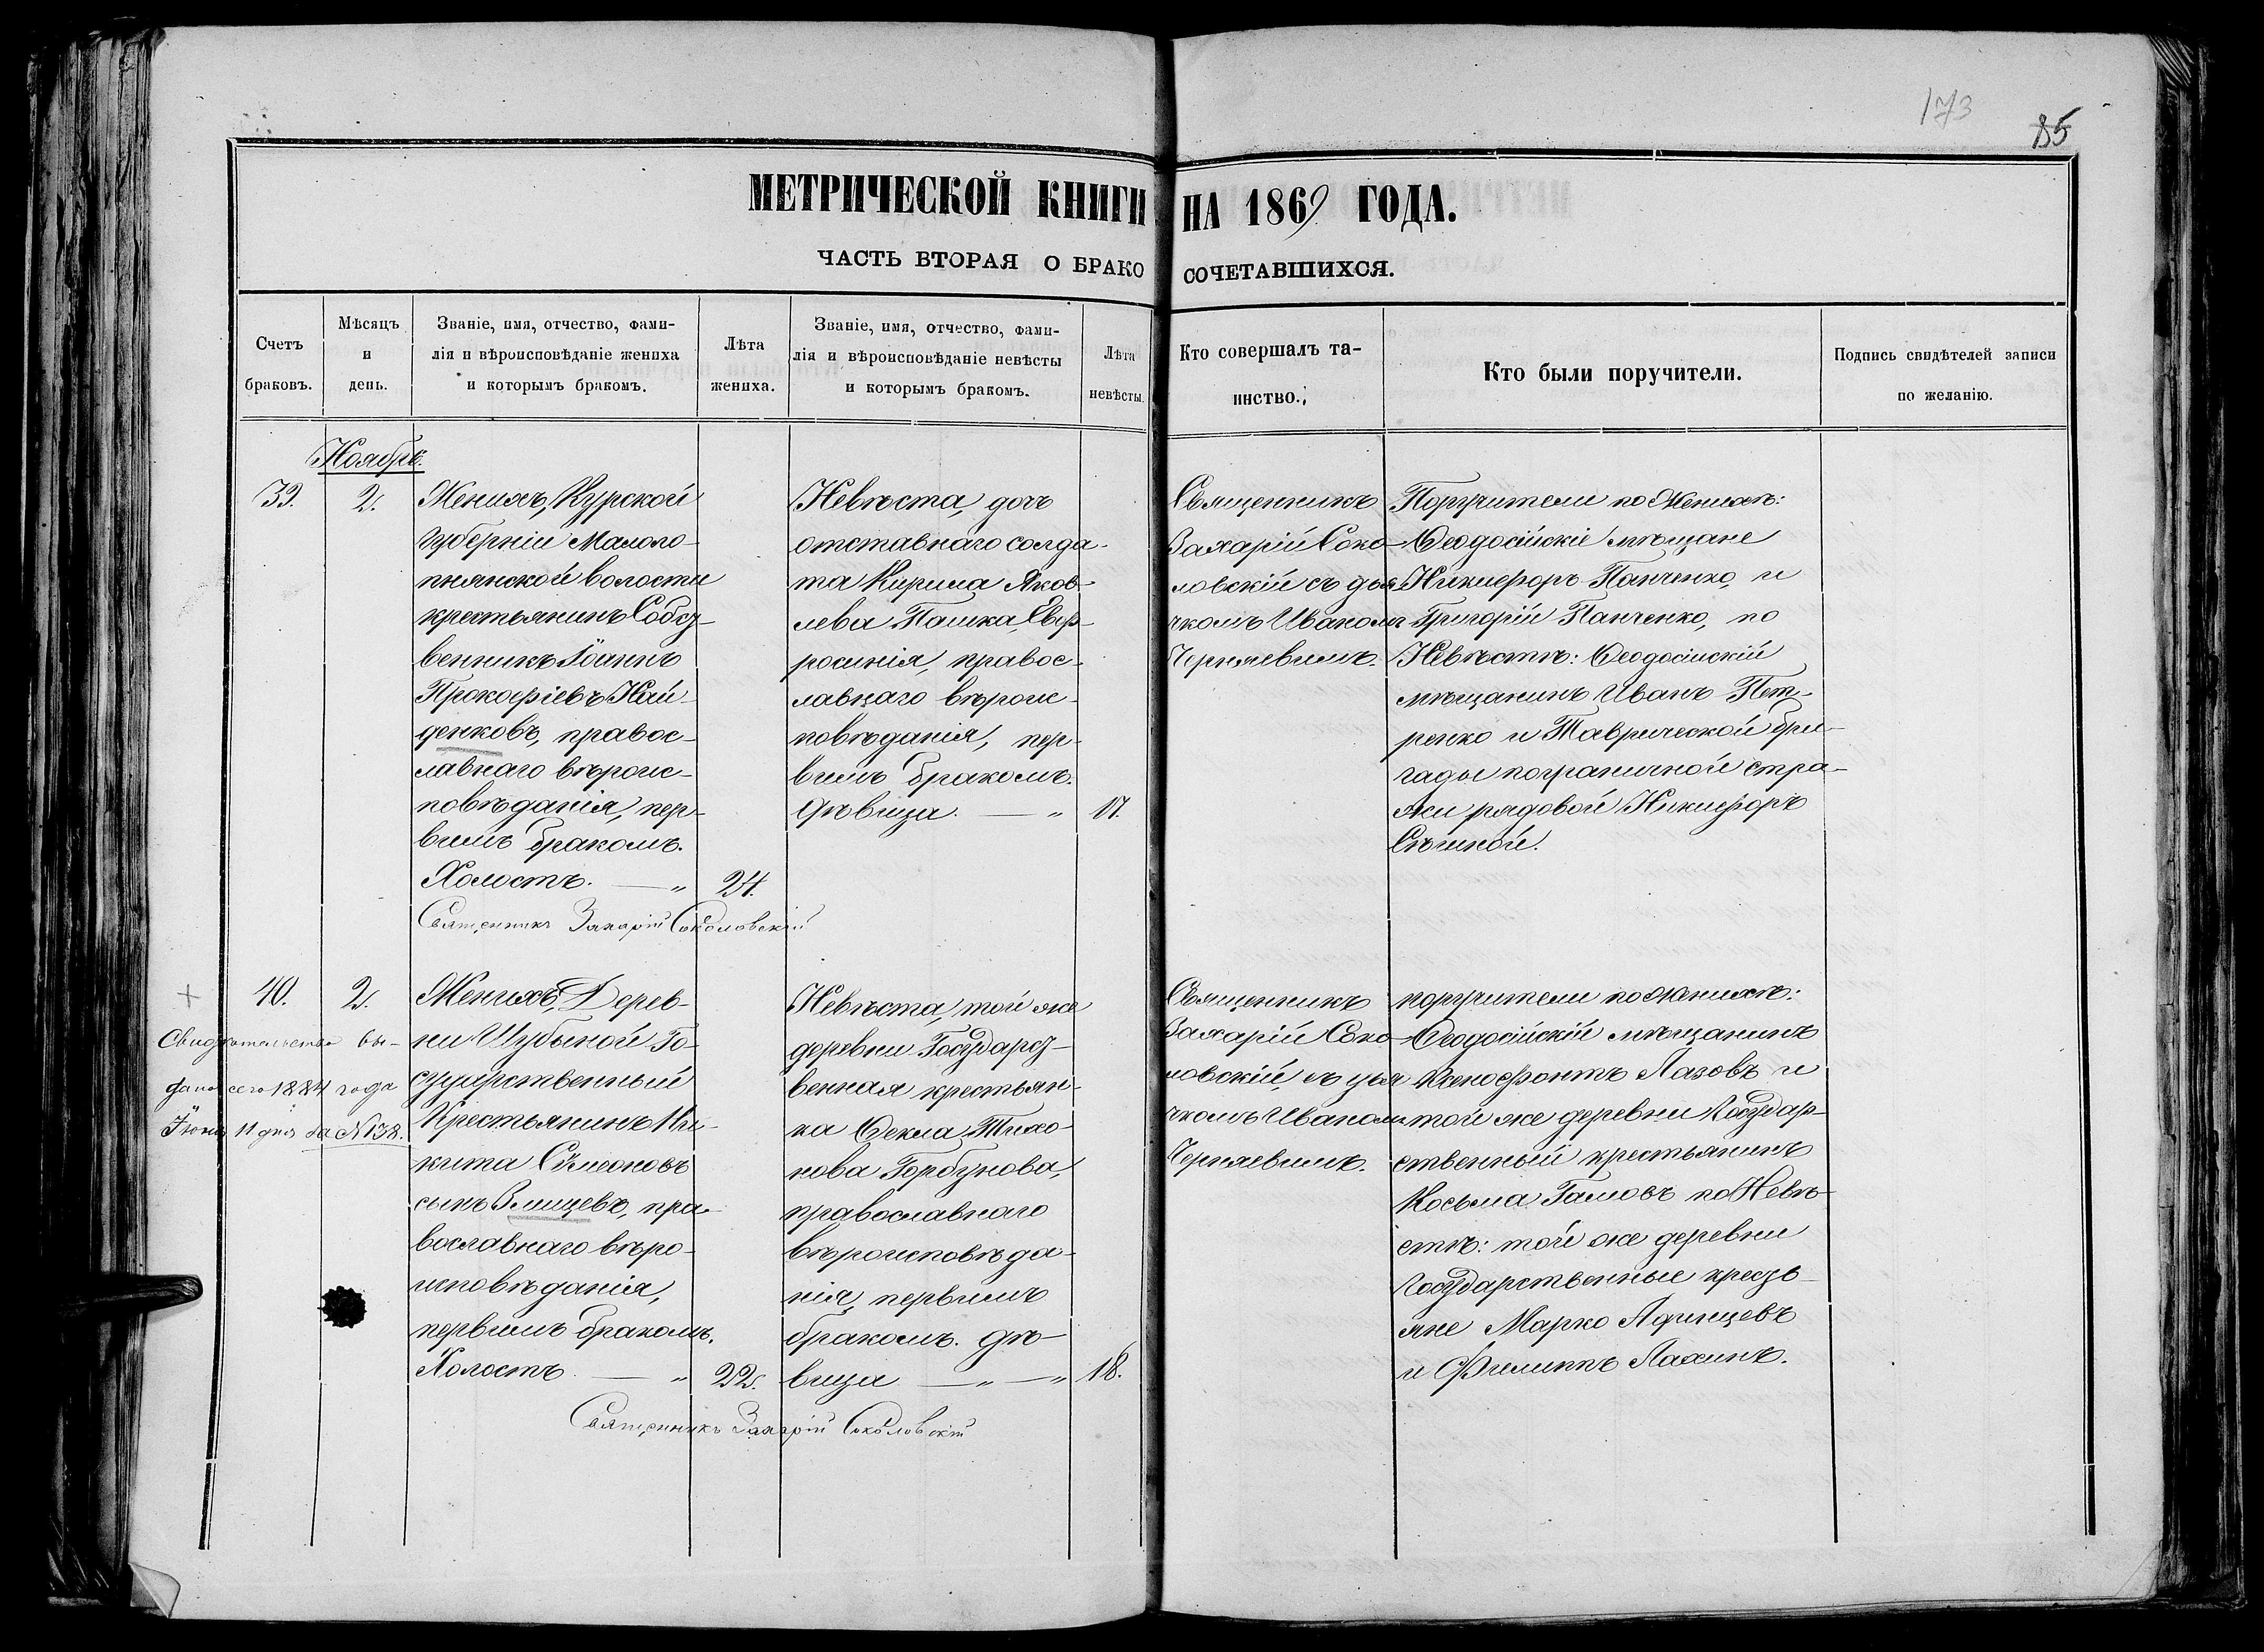 173
85
МЕТРИЧЕСКОЙ КНИГИ НА 1869 ГОДА.
ЧАСТЬ ВТОРАЯ О БРАКОСОЧЕТАВШИХСЯ.
Счетъ
браковъ.
Мѣсяцъ
и
день.
Званіе, имя, отчество, фами-
лія и вѣроисповѣданіе жениха
и которымъ бракомъ.
Лѣта
жениха.
Званіе, имя, отчество, фами-
лія и вѣроисповѣданіе невѣсты
и которымъ бракомъ.
Лѣта
невѣсты.
Кто совершалъ та-
инство.
Кто были поручители.
Подпись свидѣтелей записи
по желанію.
Ноябрь.
39.
2.
Женихъ, Курской
Губерніи Малоло-
пнянской волости
крестьянинъ Собст-
венникъ Іоаннъ
Прокофіевъ Най-
денковъ, правос-
лавнаго вѣроис-
повѣданія, пер-
вымъ бракомъ.
Холостъ. — „
24.
Невѣста, дочь
отставнаго солда-
та Кирила Яков-
лева Пашка, Евф-
росинія, правос-
лавнаго вѣроис-
повѣданія, пер-
вымъ бракомъ.
Дѣвица. — „
17.
Священникъ
Захарій Соко-
ловскій съ дья-
чкомъ Иваномъ
Черняевымъ.
Поручители по Женихѣ:
Ѳеодосійскіе мѣщане
Никифоръ Панченко, и
Григорій Панченко, по
Невѣстѣ: Ѳеодосійскій
мѣщанинъ Иванъ Пет-
ренко и Таврической бри-
гады пограничной стра-
жи рядовой Никифоръ
Священникъ Захарій Соколовскій
+
40.
2.
Свидѣтельство вы-
дано сего 1884 года
Іюня 11 дня за №138.
Женихъ, Дерев-
ни Шубыной Го-
сударственный
Крестьянинъ Ни-
кита Сѵмеоновъ
сынъ Змицевъ, пра-
вославнаго вѣро-
исповѣданія,
первымъ бракомъ.
Холостъ. — „
22.
Невѣста, той же
деревни Государст-
венная крестьян-
ка Ѳекла Тихо-
нова Горбунова,
православнаго
вѣроисповѣда-
нія, первымъ
бракомъ. Дѣ-
вица — „ — „
18.
Священникъ
Захарій Соко-
ловскій, съ дья-
чкомъ Иваномъ
Черняевымъ.
поручители по Женихѣ:
Ѳеодосійскій мѣщанинъ
Ксенофонтъ Лазовъ и
той же деревни Государ-
ственный крестьянинъ
Косьма Гамовъ по Невѣ-
стѣ: той же деревни
Государственные кресть-
яне Марко Адинцевъ
и Филиппъ Лахинъ.
Священникъ Захарій Соколовскій